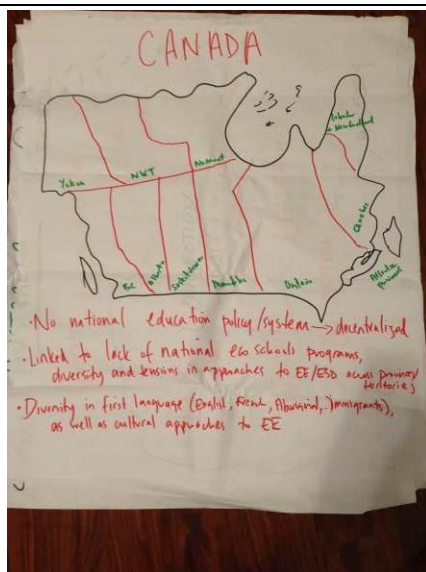 CANADA
Labrador
+ Newfoundland
Nunavut
NWT
Yukon
Quebec
BC
Alberta
Manitoba
Ontario
Atlantic
· No national education policy/system → decentralized
· Linked to lack of national eco schools programs,
diversity and tensions in approaches to EE/ESD across provinces/
territories
· Diversity in first language (English, French, Aboriginal, Immigrants),
as well as cultural approaches to EE